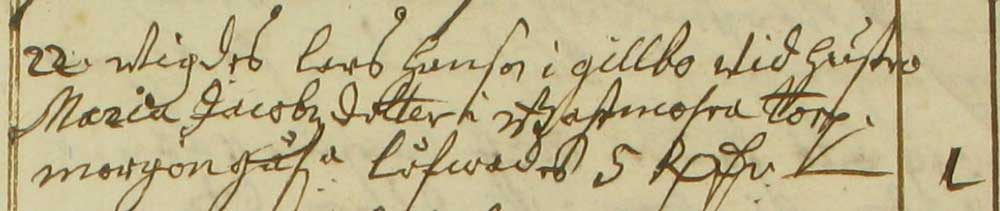 22. Wigdes Lars Hansson i gillbo wid Hustro
Maria Jacobz dotter i Wästmosra Torp.
morgongåfa lofwades 5 Rdr L